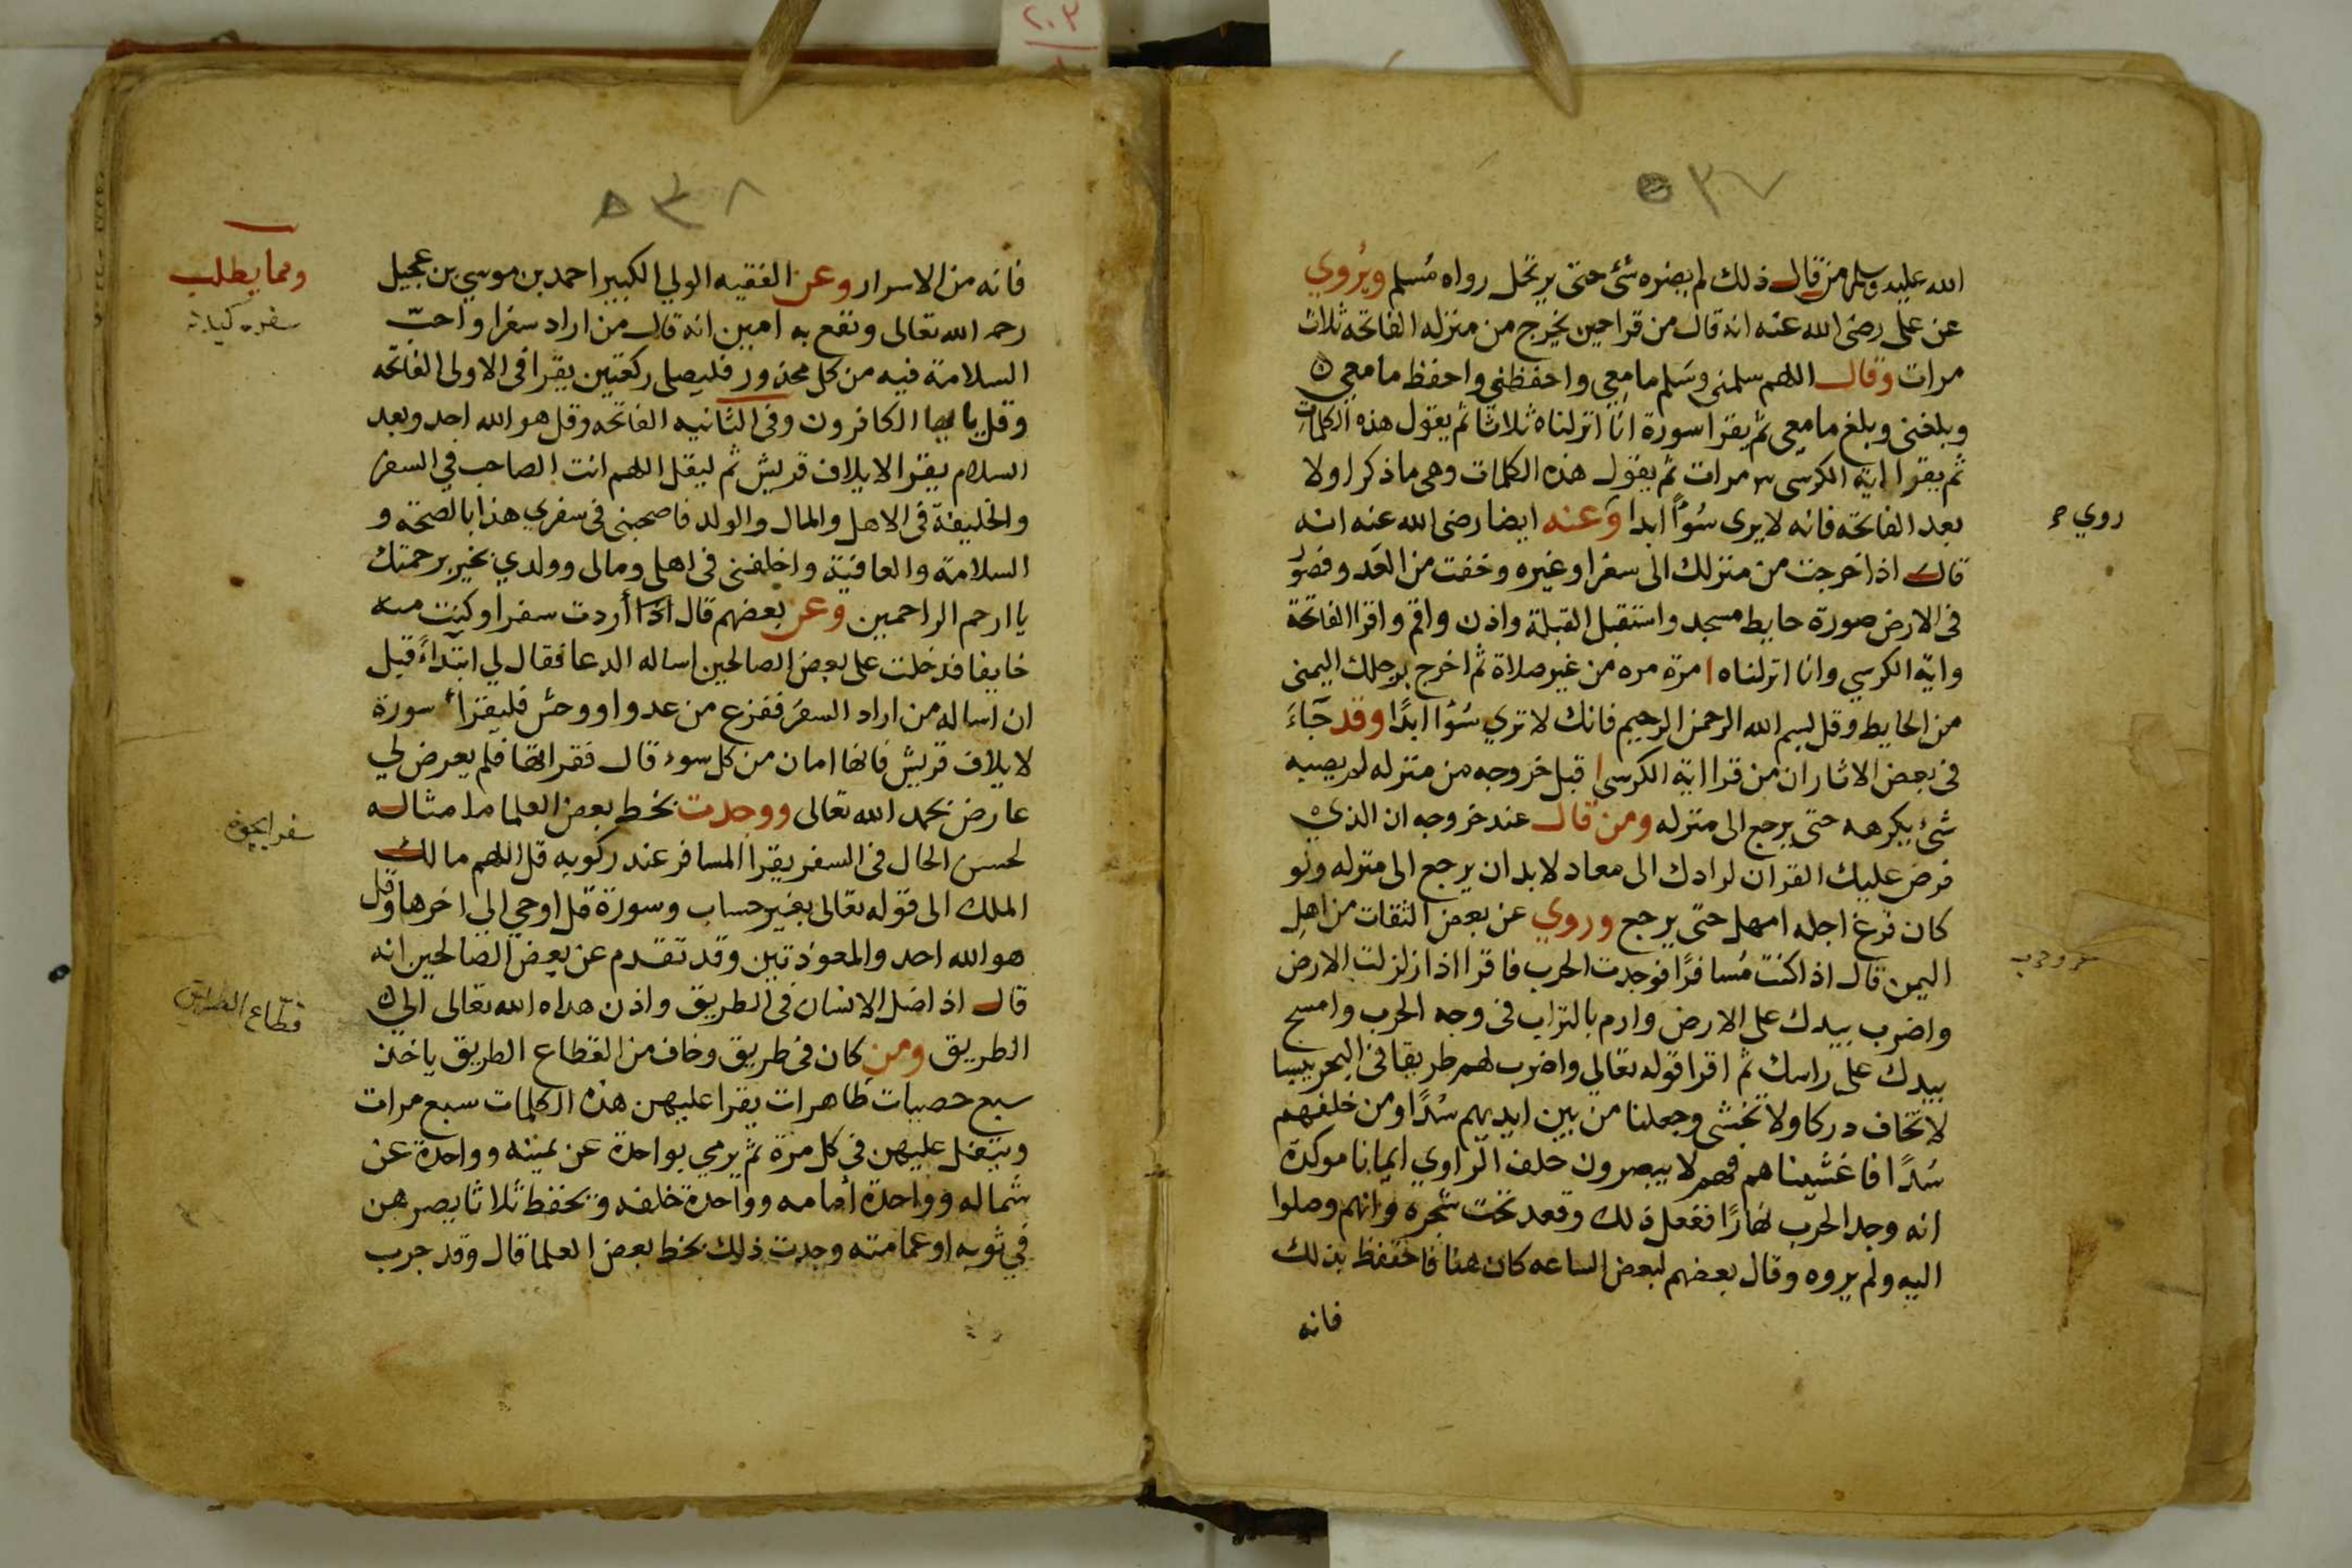 ٢٠٣
٥٣٧
الله عليه وسلم من قال ذلك لم يضره شئ حتى يرتحل رواه مُسلم ويُروي
عن على رضى الله عنه انه قال من قرا حين يخرج من منزله الفاتحه ثلاث
مرات وقال اللهم سلمنى وسَلم ما معِي واحفظني واحفظ ما معِي
وبلغنى وبلغ ما معى ثم يقرا سورة انا انزلناه ثلاثا ثم يقول هذه الكلمات
ثم يقرا اية الكرسى ٣ مرات ثم يقول هذه الكلمات وهى ما ذكر اولا
بعد الفاتحه فانه لا يرى سُوًا ابدا وَعنه ايضا رضى الله عنه انه
قال اذا خرجت من منزلك الى سفر او غيره وخفت من العَدو فصَوّر
فى الارض صورة حايط مسجد واستقبل القبلة واذن واقم واقرا الفاتحة
واية الكرسي وانا انزلناه ا مرة مره من غير صلاة ثم اخرج برجلك اليمنى
من الحايط وقل بسم الله الرحمن الرحيم فانك لا تري سُوُا ابدًا وقد جَاءَ
فى بعض الاثار ان من قرا اية الكرسى ا قبل خروجه من منزله لم يصبه
شئ يكرهه حتى يرجع الى منزله ومن قال عند خروجه ان الذي
فرض عليك القران لرادك الى معاد لا بد ان يرجع الى منزله ولو
كان فرغ اجله امهل حتى يرجع وروي عن بعض الثقات من اهل
اليمن قال اذا كنت مُسافرًا فوجدت الحرب فاقرا اذا زلزلت الارض
واضرب بيدك على الارض وارم بالتراب فى وجه الحرب وامسح
بيدك على راسك ثم اقرا قوله تعالي واضرب لهم طريقا فى البحر يبسا
لا تخاف دركا ولا تخشى وجعلنا من بين ايديهم سُدًا ومن خلفهم
سُدًا فاغشيناهم فهم لا يبصرون حلف الراوي ايمانا موكدة
انه وجد الحرب نهارًا ففعل ذلك وقعد تحت شجره وانهم وصلوا
اليه ولم يروه وقال بعضهم لبعض الساعه كان هنا فاحتفظ بذلك
فانه
روي
٥٣٨
فانه من الاسرار وعن الفقيه الولي الكبير احمد بن موسي بن عجيل
رحمه الله تعالى ونفع به امين انه قال من اراد سفرا واحبّ
السلامة فيه من كل محذور فليصلى ركعتين يقرا فى الاولى الفاتحه
وقل يا ايها الكافرون وفى الثانيه الفاتحه وقل هو الله احد وبعد
السلام يقرا لايلاف قريش ثم ليقل اللهم انت الصاحب في السفر
والخليفة فى الاهل والمال والولد فاصحبنى فى سفري هذا بالصحة و
السلامة والعافية واخلفنى فى اهلى ومالى وولدي بخير برحمتك
يا ارحم الراحمين وعن بعضهم قال اذا أردت سفرا وكنت منه
خايفا فدخلت على بعض الصالحين اساله الدعا فقال لي ابتدآءً قبل
ان اساله من اراد السفر ففزع من عدو او وحش فليقرأ سورة
لايلاف قريش فانها امان من كل سوء قال فقراتها فلم يعرض لي
عارض بحمد الله تعالى ووجدت بخط بعض العلما ما مثاله
لحسن الحال فى السفر يقرا المسافر عند ركوبه قل اللهم مالك
الملك الى قوله تعالى بغير حساب وسورة قل اوحي الي اخرها وقل
هو الله احد والمعوذتين وقد تقدم عن بعض الصالحين انه
قال اذا ضل الانسان فى الطريق واذن هداه الله تعالى الى
الطريق ومن كان فى طريق وخاف من القطاع الطريق ياخذ
سبع حصيات طاهرات يقرا عليهن هذه الكلمات سبع مرات
ويتفل عليهن في كل مرة ثم يرمي بواحدة عن يمينه وواحدة عن
شماله وواحدة أمامه وواحدة خلفه ويحفظ ثلاثا يصرهن
في ثوبه او عمامته وجدت ذلك بخط بعض العلما قال وقد جرب
ومما يطلب
قطاع الطريق